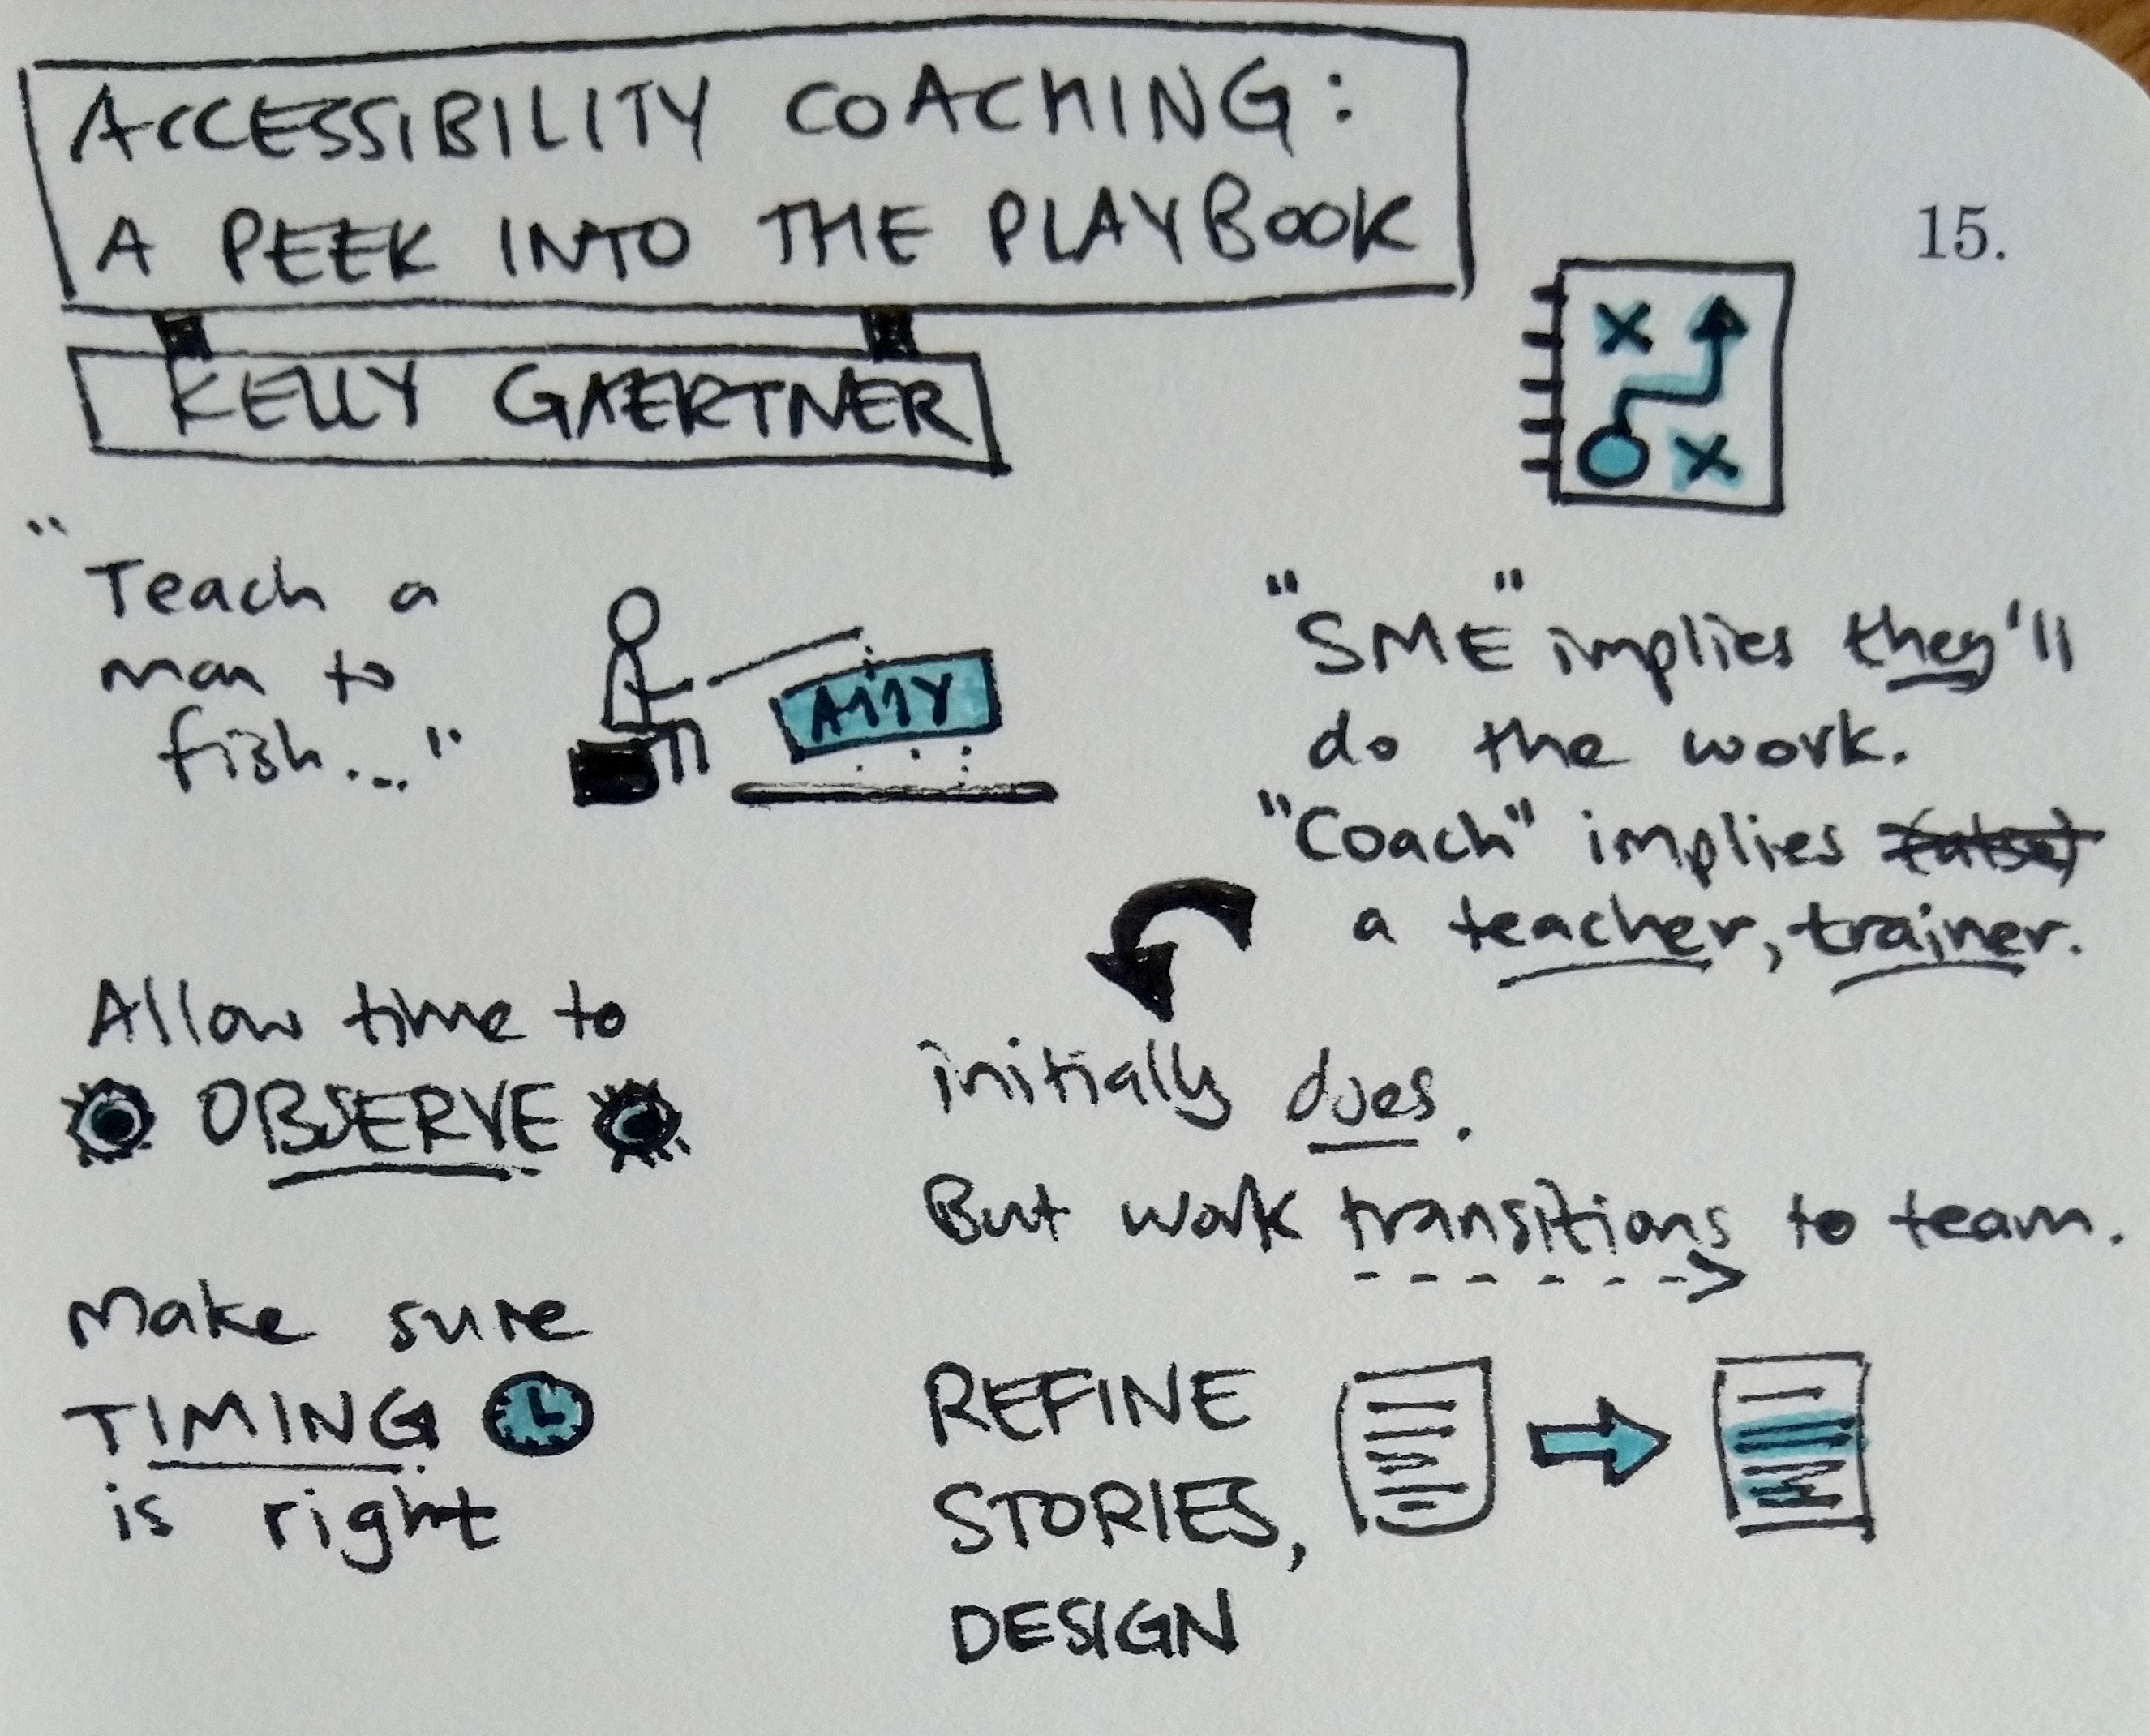 ACCESSIBILITY COACHING:
A PEEK INTO THE PLAYBOOK
15.
KELLY GAERTNER
"Teach a
man to
fish..."
A11Y
"SME" implies they'll
do the work.
"Coach" implies
a teacher, trainer.
initially does.
But work transitions to team.
Allow time to
OBSERVE
Make sure
TIMING
is right
REFINE
STORIES,
DESIGN